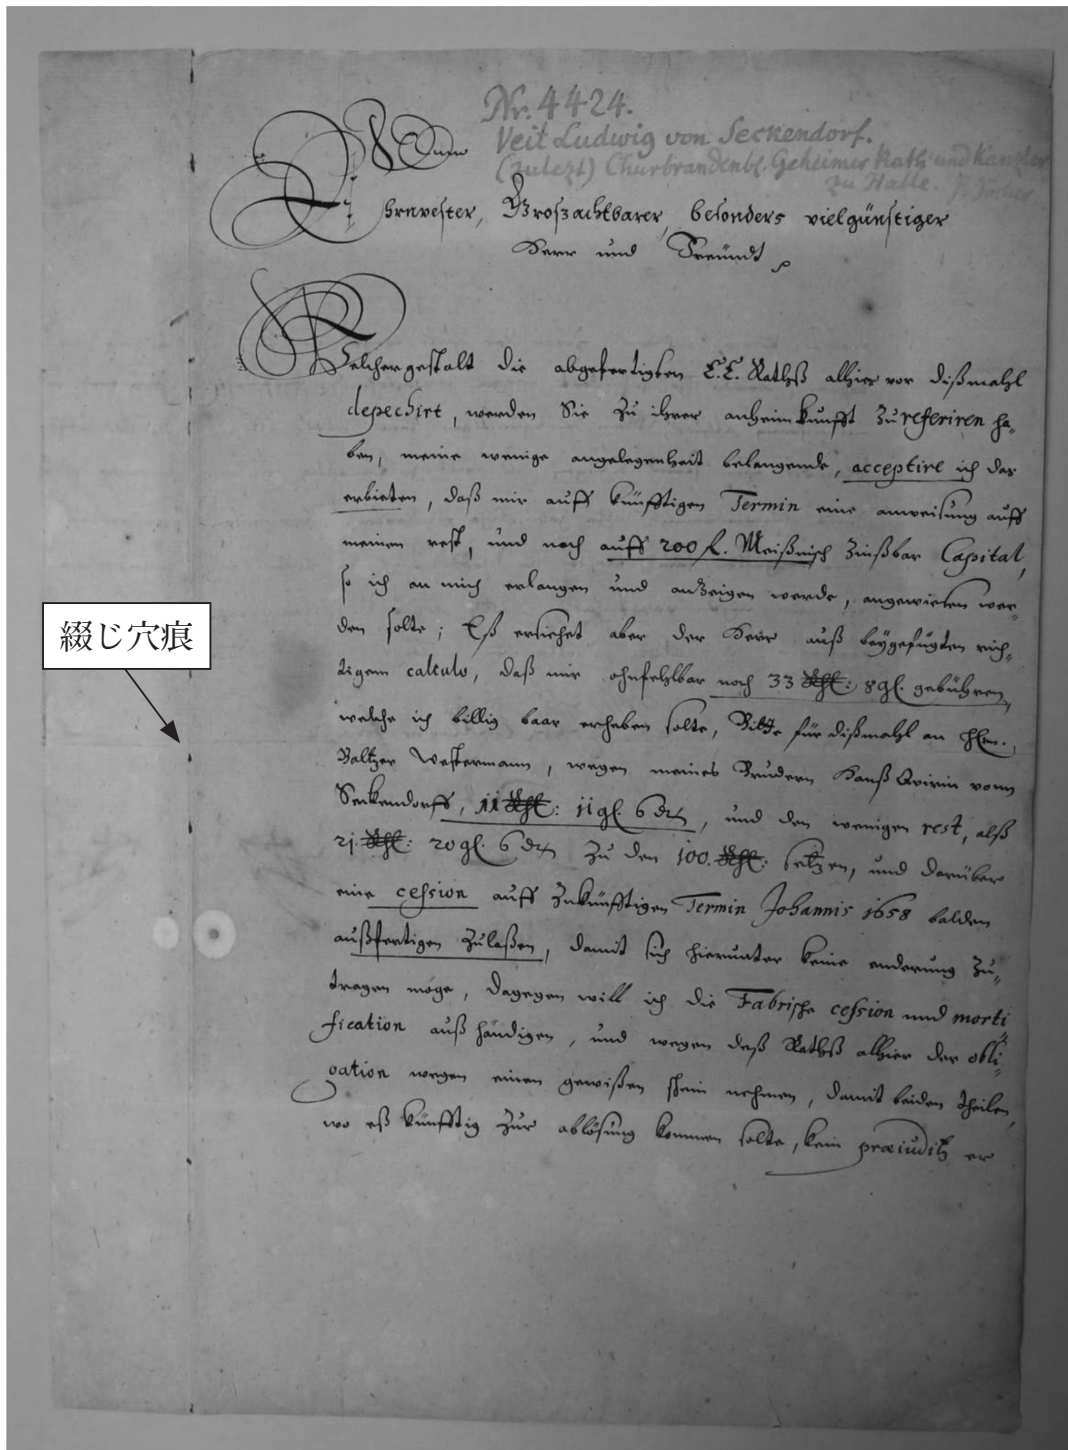 Nr. 4424.
Veit Ludwig von Seckendorf.
(zuletzt) Churbrandenbl. Geheimer Rath und Kanzler
zu Halle.
Ehrnvester, Großachtbarer, besonders vielgünstiger
Herr und Freündt
Welchergestalt die abgefertigten E.E. Rathß alhier vor dißmahl
depechirt, werden Sie zu ihrer anheimkunfft zu referiren ha-
ben, meine wenige angelegenheit belangende, acceptire ich das
erbieten, daß mir auff künfftigen Termin eine anweisung auff
meinen rest, und noch auff 200 fl. Meißnisch Zinßbar Capital,
so ich an mich erlangen und anzeigen werde, angewiesen wer-
den solte; Eß ersiehet aber der Herr auß beÿgefügten rich-
tigem calculo, daß mir ohnfehlbar noch 33 Rthl: 8 gl. gebühren,
welche ich billig baar erheben solte, Bitte für dißmahl an Hln.
Baltzer Westermann, wegen meines Brudern Hanß Qvirin vonn
Seckendorff, 11 Rthl: 11 gl. 6 d, und den wenigen rest, alß
21. Rthl: 20 gl. 6 d zu den 100. Rthl: setzen, und darüber
eine cession auff Zukünfftigen Termin Johannis 1658 balden
außfertigen zulaßen, damit sich hierunter keine enderung zu-
tragen möge, dagegen will ich die Fabrische cession und morti
fication außhändigen, und wegen deß Rathß alhier der obli-
gation wegen einen gewißen schein nehmen, damit beiden theilen,
wo eß künfftig zur ablösung kommen solte, kein præiuditz er
綴じ穴痕